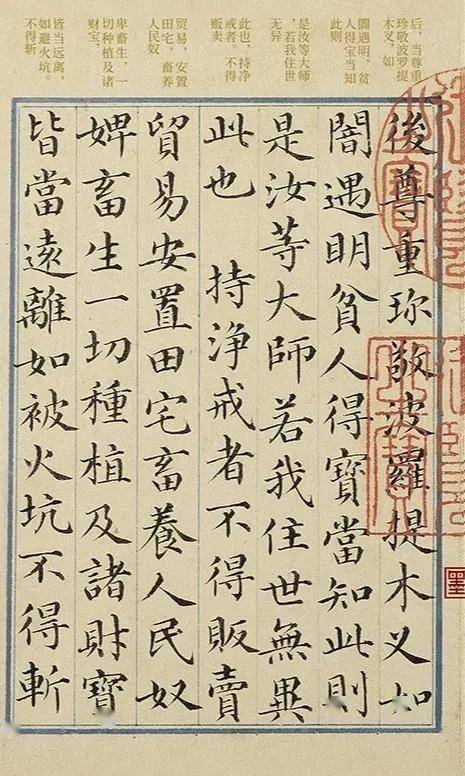 后，当尊重
珍敬波罗提
木叉，如
闇遇明，贫
人得宝当知
此则
是汝等大师
，若我住世
无异
此也，持净
戒者。不得
贩卖
贸易，安置
田宅，畜养
人民奴
卑畜生，一
切种植及诸
财宝，
皆当远离，
如避火坑。
不得斩
後尊重珎敬波羅提木叉如
闇遇明貧人得寶當知此則
是汝等大師若我住世無異
此也 持净戒者不得販賣
貿易安置田宅畜養人民奴
婢畜生一切種植及諸財寶
皆當遠離如被火坑不得斬
墨